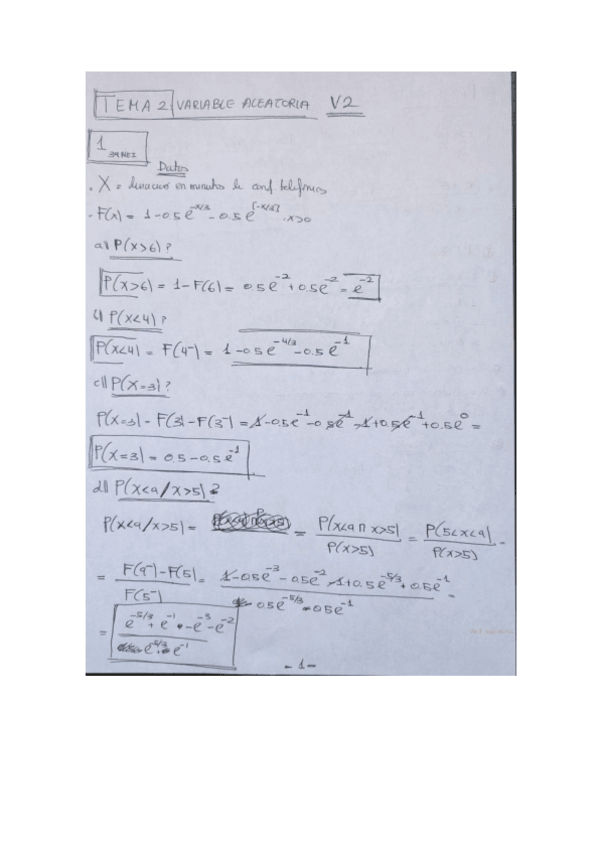 TEMA 2 VARIABLE ALEATORIA V2
1
Datos
. X = duración en minutos de conf telefónica
- F(x) = 1 - 0.5 e^{-x/3} - 0.5 e^{[-x/3]} . x>0
a) P(x>6)?
P(x>6) = 1 - F(6) = 0.5e^{-2} + 0.5e^{-2} = e^{-2}
P(x<4)?
P(x<4) = F(4^-) = 1 - 0.5e^{-4/3} - 0.5e^{-1}
c) P(X=3)?
P(x=3) = F(3) - F(3^-) = 1 - 0.5e^{-1} - 0.5e^{-1} - 1 + 0.5e^{-1} + 0.5e^{0} =
P(X=3) = 0.5 - 0.5e^{-1}
d) P(x<9/x>5)?
P(x<9/x>5) = = P(x<9 ∩ x>5) / P(x>5) = P(5<x<9) / P(x>5) =
= F(9^-) - F(5) / F(5^-) = 1 - 0.5e^{-3} - 0.5e^{-2} - 1 + 0.5e^{-5/3} + 0.5e^{-1} / 0.5e^{-5/3} 0.5e^{-1} =
= e^{-5/3} + e^{-1} - e^{-3} - e^{-2} / e^{-5/3} + e^{-1}
- 1 -